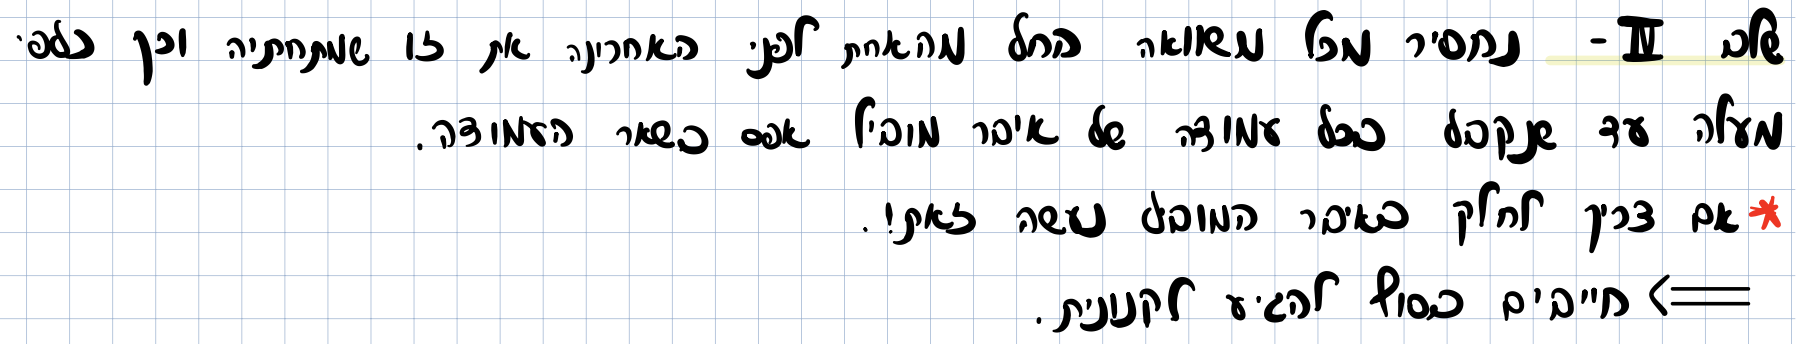 שלב IV - נחסיר מכל משוואה החל מהאחת לפני האחרונה את זו שמתחתיה וכך כלפי
מעלה עד שנקבל בכל עמודה של איבר מוביל אפס בשאר העמודה.
* אם צריך לחלק באיבר המוביל נעשה זאת!.
<= חייבים בסוף להגיע לקנונית.